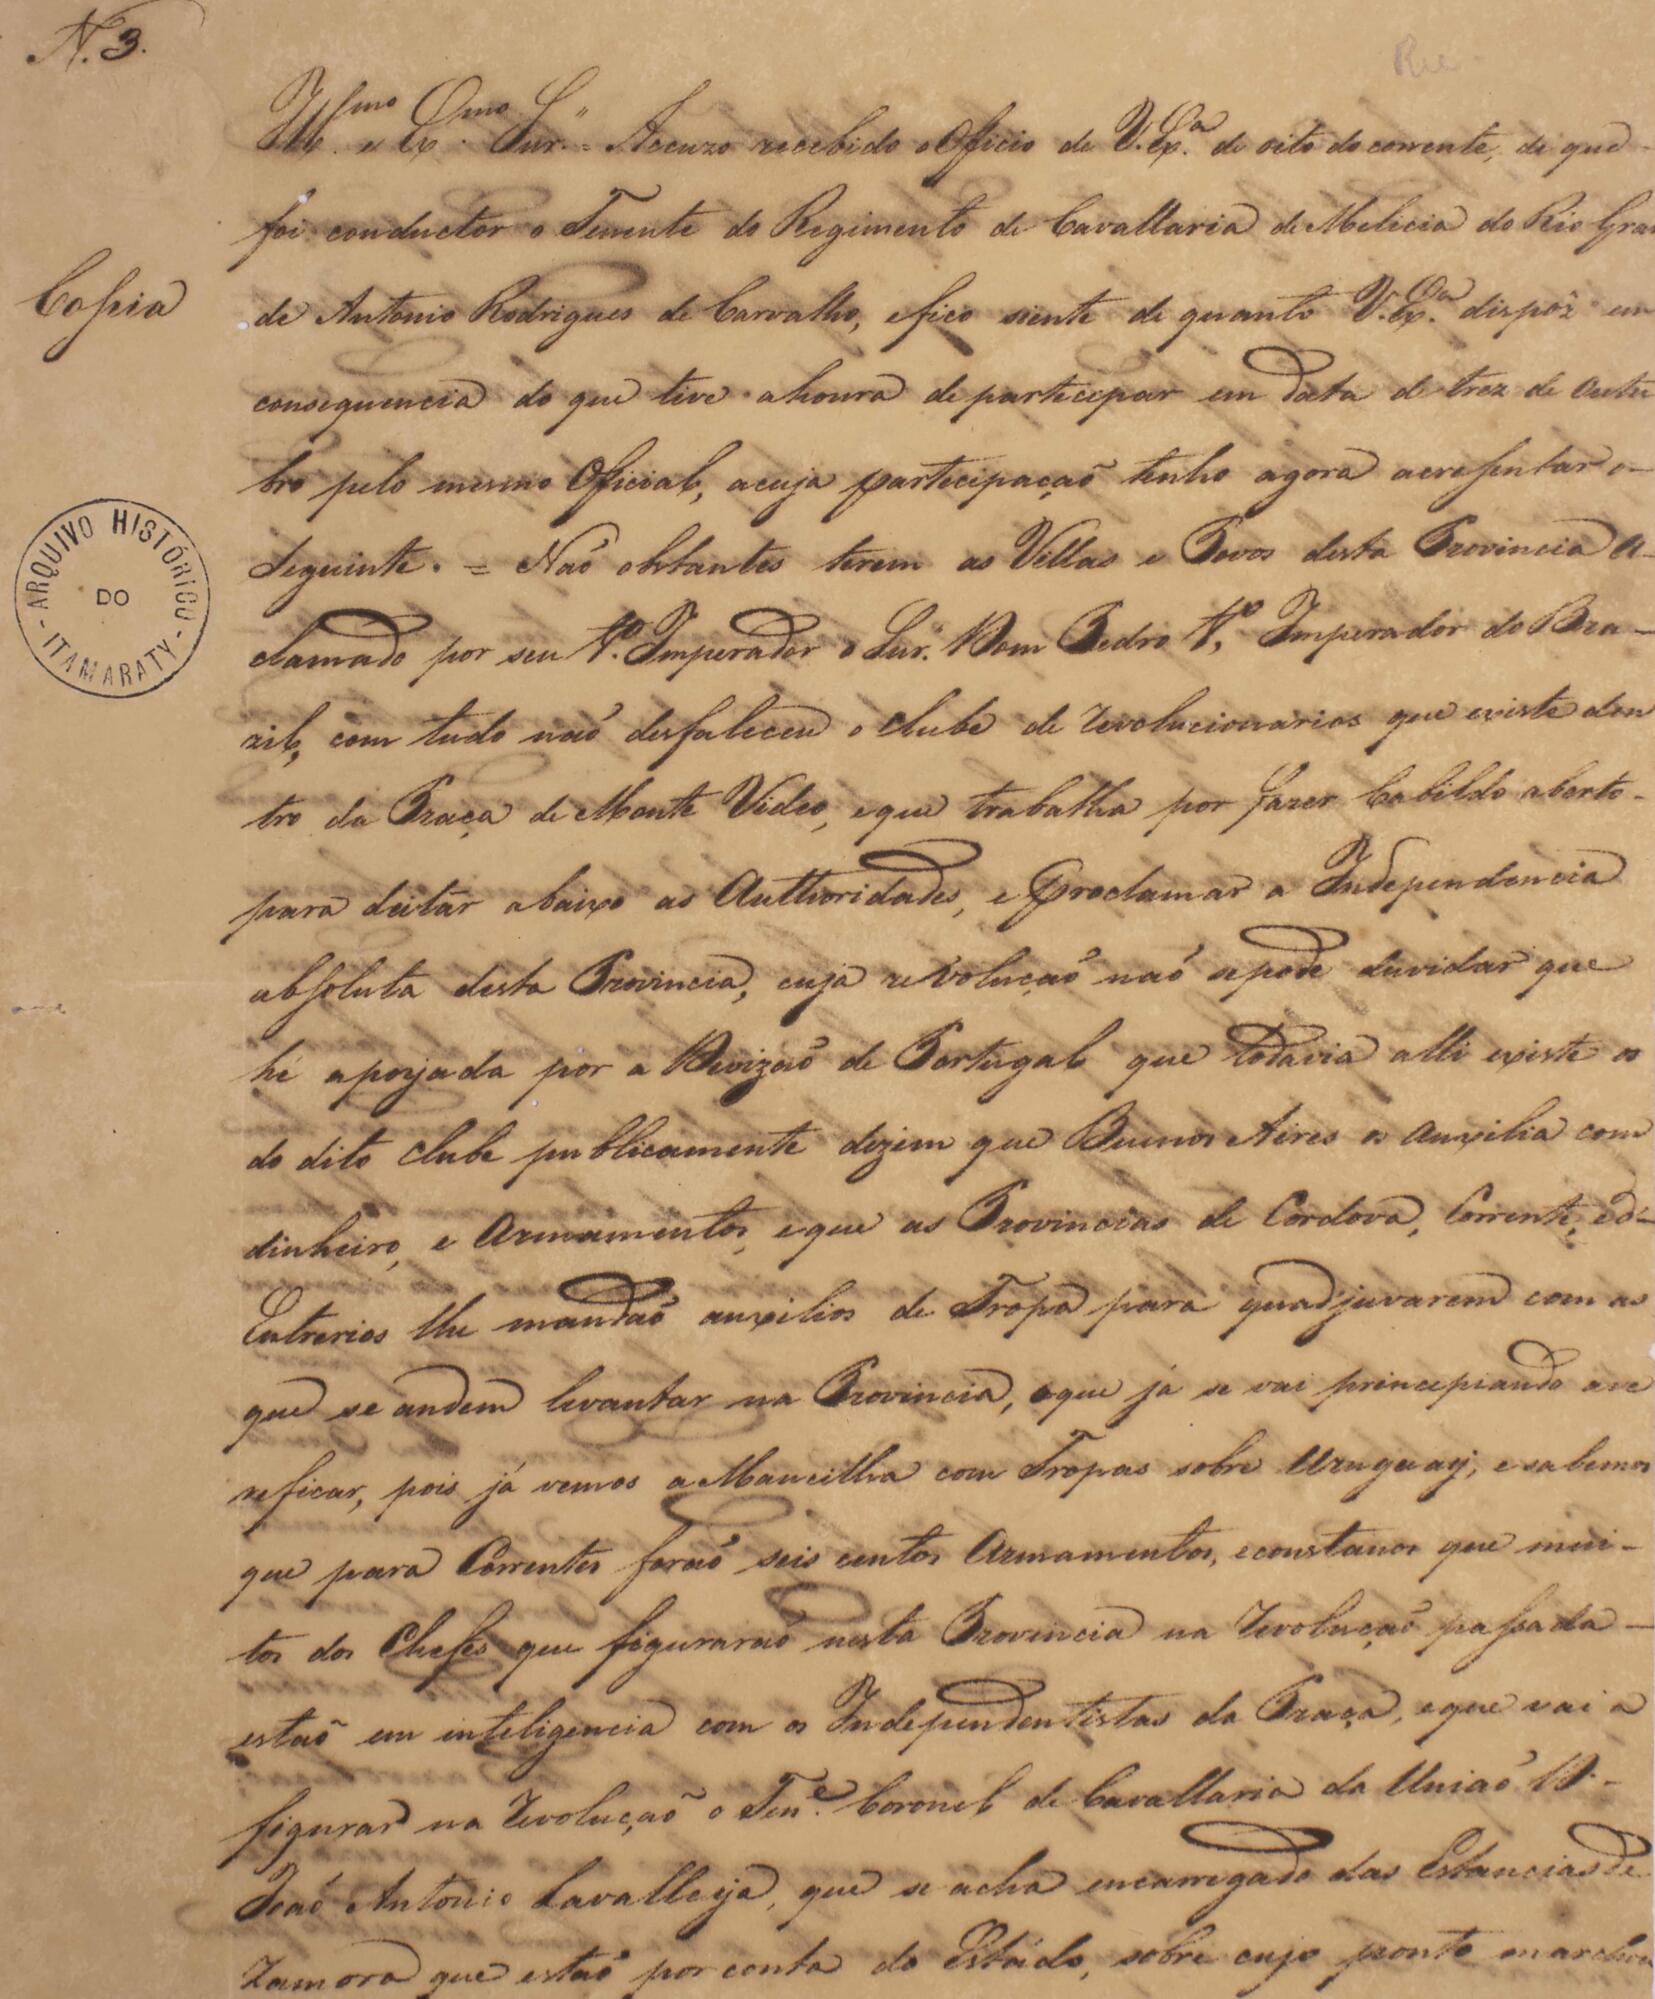 N. 3.
Illmo e Exmo Snr. = Accuzo recebido o Oficio de V. Exa. de oito do corrente, de que
foi conductor o Tenente do Regimento de Cavallaria de Melicia do Rio Gran
Copia
de Antonio Rodrigues de Carvalho, e fico siente de quanto V. Exa. dispôz em
consequencia do que tive a honra de partecepar em data de trez de outu
bro pelo mesmo Oficial, a cuja partecipação tenho agora acressentar o
Seguinte. = Naõ obstantes terem as Villas e Povos desta Provincia a-
clamado por seu 1º. Imperador o Snr. Dom Pedro 1º, Imperador do Bra-
zil, com tudo naõ desfaleceu o clube de revolucionarios que existe den
tro da Praça de Monte Video, e que trabalha por fazer Cabildo aberto
para deitar abaixo as Authoridades, e Proclamar a Independencia
absoluta desta Provincia, cuja revoluçaõ naõ se pode duvidar que
hé apoyada por a Divizaõ de Portugal que todavia alli existe os
do dito clube publicamente dizem que Buenos Aires os auxilia com
dinheiro, e Armamentos, e que as Provincias de Cordova, Corrente, e d'-
Entrerios lhe mandaõ auxilios de Tropa para quadjuvarem com as
que se andem levantar na Provincia, o que já se vai principiando a ve
reficar, pois já vemos a Mancilha com Tropas sobre Uruguay, e sabemos
que para Correntes foraõ seis centos Armamentos, e constanos que mui-
tos dos Chefes que figuraraõ nesta Provincia na Revoluçaõ passada
estaõ em inteligencia com os Independentistas da Praça, e que vai a
figurar na Revoluçaõ o Tene. Coronel de Cavallaria da Uniaõ D.
Joaõ Antonio Lavalleja, que se acha encarregado das Estancias de
Zamora que estaõ por conta do Estado, sobre cujo ponto
ARQUIVO HISTÓRICO
DO
ITAMARATY